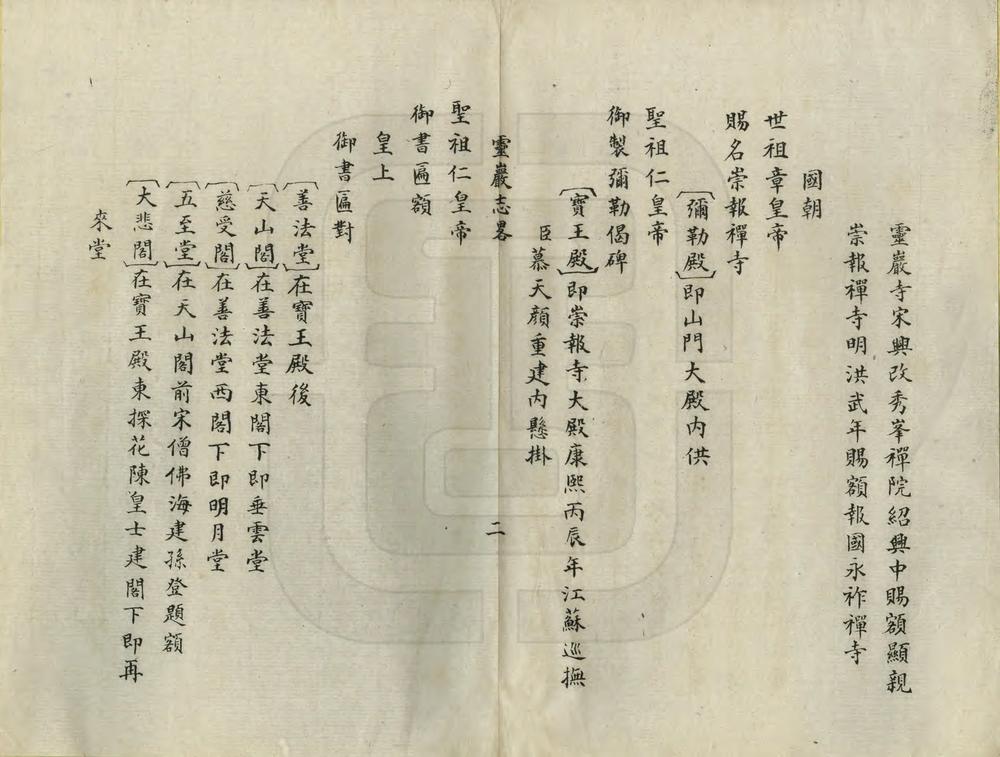 靈巖寺宋興改秀峯禪院紹興中賜額顯親
崇報禪寺明洪武年賜額報國永祚禪寺
國朝
世祖章皇帝
賜名崇報禪寺
〔彌勒殿〕即山門大殿內供
聖祖仁皇帝
御製彌勒偈碑
〔寶王殿〕即崇報寺大殿康熙丙辰年江蘇巡撫
臣慕天顏重建內懸掛
靈巖志畧 二
聖祖仁皇帝
御書匾額
皇上
御書匾對
〔善法堂〕在寶王殿後
〔天山閣〕在善法堂東閣下即垂雲堂
〔慈受閣〕在善法堂西閣下即明月堂
〔五至堂〕在天山閣前宋僧佛海建孫登題額
〔大悲閣〕在寶王殿東探花陳皇士建閣下即再
來堂